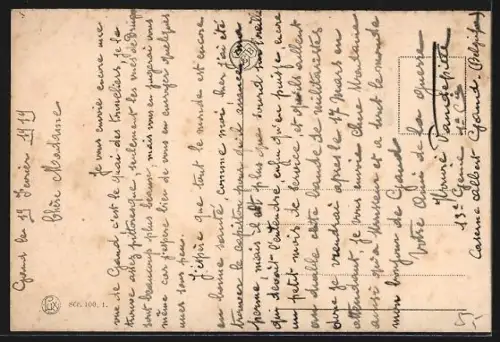 Gand le 23 Fevrier 1919
Chère Madame
Je vous envoie encore une
vue de Gand c'est le quai des tonneliers, je la
trouve assez pittoresque, seulement les vues de Bruges
sont beaucoup plus beaux mais vous en jugerai vous
même car j'espère bien de vous en envoyer quelques
unes sous peu.
J'espère que tout le monde est encore
en bonne santé, comme moi her j'ai été
trouver le capitaine pour de
permé mais il est plus que sourd
qui devait l'entendre, enfin qu'on puisse encore
un petit mois de service et qu'ils aillent
au diable cette bande de militaristes
donc je reviendrai apres le 17 Mars en
attendant je vous envoie chère Madame
ainsi qu'a Monsieur et a tout le monde
mon bonjour de Gand
Votre Ami de la guerre
Honoré Vandeputte
13e Genie 1e Cie
Caserne Albert Gand (Belgique)
SER. 100, 1.